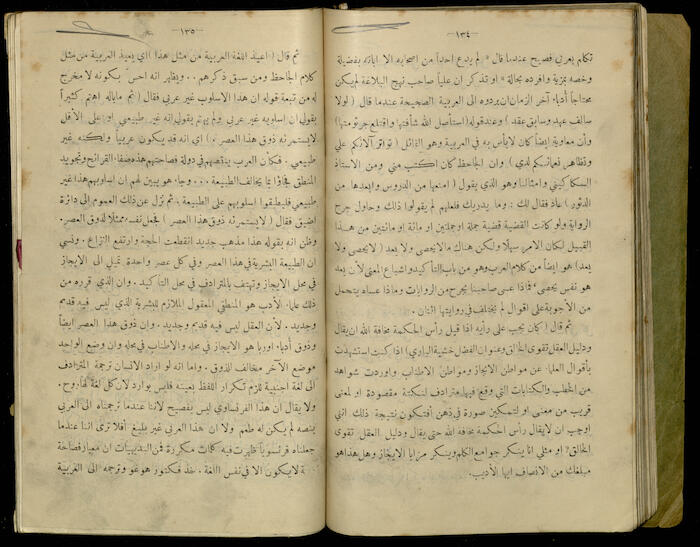 —١٣٤—
تكلم بعربي فصيح عندما قال « لم يدع احداً من اصحابه الا ابانه بفضيلة
وخصه بمزية وافرده بحالة » او تذكر ان علياً صاحب نهج البلاغة لم يكن
محتاجاً لأدباء آخر الزمان ان يردوه الى العربية الصحيحة عندما قال ( لولا
سالف عهد وسابق عقد ) وعند قوله ( استأصل الله شأفتها واقتلع جرثومتها )
وأن معاوية ايضاً كان لا بأس به في العربية وهو القائل ( تواتر آلائكم علي
وتظاهر نعمائكم لدي ) وان الجاحظ كان اكتب مني ومن الاستاذ
السكاكيني وامثالنا وهو الذي يقول ( امنعها من الدروس وابعدها من
الدثور ) عاد فقال لك : وما يدريك فلعلهم لم يقولوا ذلك وحاول جرح
الرواية ولو كانت القضية قضية جملة او جملتين او مائة او مائتين من هذا
القبيل لكان الامر سهلاً ولكن هناك ما لا يحصى ولا يعد ( لا يحصى ولا
يعد ) هو ايضاً من كلام العرب وهو من باب التأكيد واشباع المعنى لأن يعد
هو نفس يحصى . فماذا عسى صاحبنا يجرح من الروايات وماذا عساه يتحمل
من الأجوبة على اقوال لم يختلف في روايتها اثنان .
ثم قال اكان يجب على رأيه اذا قيل رأس الحكمة مخافة الله ان يقال
ودليل العقل تقوى الخالق وعنوان الفضل خشية الباري ) اذا كنت استشهدت
بأقوال العلماء عن مواطن الايجاز ومواطن الاطناب واوردت شواهد
من الخطب والكتابات التي وقع فيها مترادف لنكتة مقصودة او لمعنى
قريب من معنى او لتمكين صورة في ذهن أفتكون نتيجة ذلك انني
اوجب ان لا يقال رأس الحكمة مخافة الله حتى يقال ودليل العقل تقوى
الخالق ؟ او مثلي انا ينكر جوامع الكلم وينكر مزايا الايجاز وهل هذا هو
مبلغك من الانصاف ايها الأديب .
—١٣٥—
ثم قال ( اعيذ اللغة العربية من مثل هذا ) اي يعيذ العربية من مثل
كلام الجاحظ ومن سبق ذكرهم . . ويظهر انه احس بكونه لا مخرج
له من تبعة قوله ان هذا الاسلوب غير عربي فقال ( ثم ماباله اهتم كثيراً
بقولي ان اسلوبه غير عربي ولم يهتم بقولي انه غير طبيعي او على الأقل
لا يستمرئه ذوق هذا العصر . ) اي انه قد يكون عربياً ولكنه غير
طبيعي . فكأن العرب ينقصهم في دولة فصاحتهم هذه صفاء القرائح وتجويد
المنطق فجاؤا بما يخالف الطبيعة . . . وجاء هو يبين لهم ان اسلوبهم هذا غير
طبيعي فليطبقوا اسلوبهم على الطبيعة ، ثم نزل عن ذلك العموم الى دائرة
اضيق فقال ( لا يستمرئه ذوق هذا العصر ) فجعل نفسه ممثلا لذوق العصر .
وظن انه بقوله هذا مذهب جديد انقطعت الحجة وارتفع النزاع . ونسي
ان الطبيعة البشرية في هذا العصر وفي كل عصر واحدة تميل الى الايجاز
في محل الايجاز وتهتف بالمترادف في محل التأكيد . وان الذي قرره من
ذلك علماء الأدب هو المنطقي المعقول الملازم للبشرية الذي ليس فيه قديم
وجديد . لأن العقل ليس فيه قديم وجديد . وان ذوق هذا العصر ايضاً
وذوق أدباء اوربا هو الايجاز في محله والاطناب في محله وان وضع الواحد
موضع الآخر مخالف للذوق . واما انه لو اراد الانسان ترجمة المترادف
الى لغة اجنبية للزم تكرار اللفظ بعينه فليس بوارد لأن كل لغة لها روح .
ولا يقال ان هذا الفرنساوي ليس بفصيح لاننا عندما ترجمناه الى العربي
بنصه لم يكن له طعم ولا ان هذا العربي غير بليغ أفلا ترى اننا عندما
جعلناه فرنسوياً ظهرت فيه كلمات مكررة فمن البديهيات ان معيار فصاحة
لا يكون الا في نفس اللغة . خذ فكتور هوغو وترجمه الى العربية